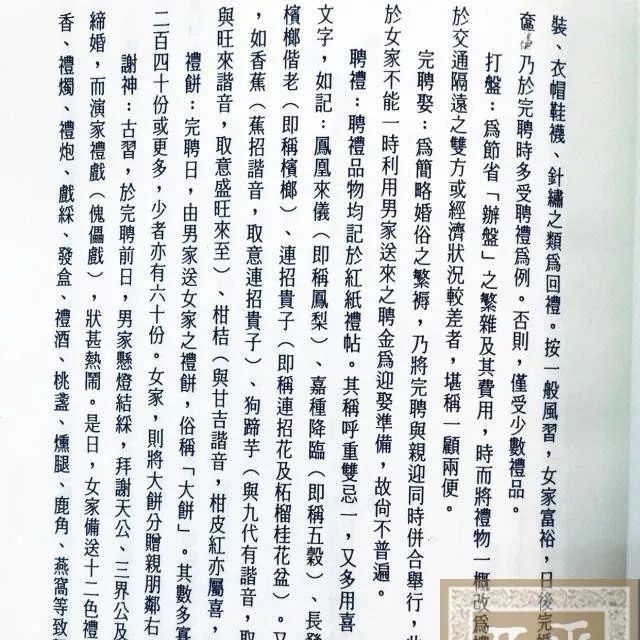 裝、衣帽鞋襪、針繡之類爲回禮。按一般風習，女家富裕，日後完
奩，乃於完聘時多受聘禮爲例。否則，僅受少數禮品。
打盤：爲節省「辦盤」之繁雜及其費用，時而將禮物一概改爲
於交通隔遠之雙方或經濟狀況較差者，堪稱一顧兩便。
完聘娶：爲簡略婚俗之繁褥，乃將完聘與親迎同時併合舉行，
於女家不能一時利用男家送來之聘金爲迎娶準備，故尙不普遍。
聘禮：聘禮品物均記於紅紙禮帖。其稱呼重雙忌一，又多用喜
文字，如記：鳳凰來儀（即稱鳳梨）、嘉種降臨（即稱五穀）、長發
檳榔偕老（即稱檳榔）、連招貴子（即稱連招花及柘榴桂花盆）。又
，如香蕉（蕉招諧音，取意連招貴子）、狗蹄芋（與九代有諧音，取
與旺來諧音，取意盛旺來至）、柑桔（與甘吉諧音，柑皮紅亦屬喜，
禮餅：完聘日，由男家送女家之禮餅，俗稱「大餅」。其數多寡
二百四十份或更多，少者亦有六十份。女家，則將大餅分贈親朋鄰右
謝神：古習，於完聘前日，男家懸燈結綵，拜謝天公、三界公及
締婚，而演家禮戲（傀儡戲），狀甚熱鬧。是日，女家備送十二色禮
香、禮燭、禮炮、戲綵、發盒、禮酒、桃盞、燻腿、鹿角、燕窩等致